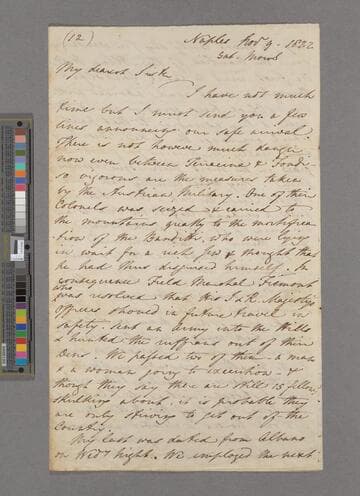 (12) Naples Nov 9 - 1822
Sat. Morn
My dearest
I have not much
time but I must send you a few
lines announcing our safe arrival.
There is not however much danger
now even between Terracina & Fondi -
so vigorous are the measures taken
by the Austrian Military. One of their
Colonels was seized & carried to
the mountains greatly to the mortifica
-tion of the Banditti, who were lying
in wait for a rich Jew & thought that
he had thus disguised himself. In
consequence Field Marshal Fremont
who
was resolved that His I & R. Majesty's
Officers should in future travel in
safety sent an army into the Hills
& hunted the ruffians out of their
Dens. We passed two of them - a man
& a woman going to Execution - &
though they say there are still 15 fellows
skulking about, it is probable they
are only striving to get out of the
Country.
My last was dated from Albano
on Wedy night. We employed the next